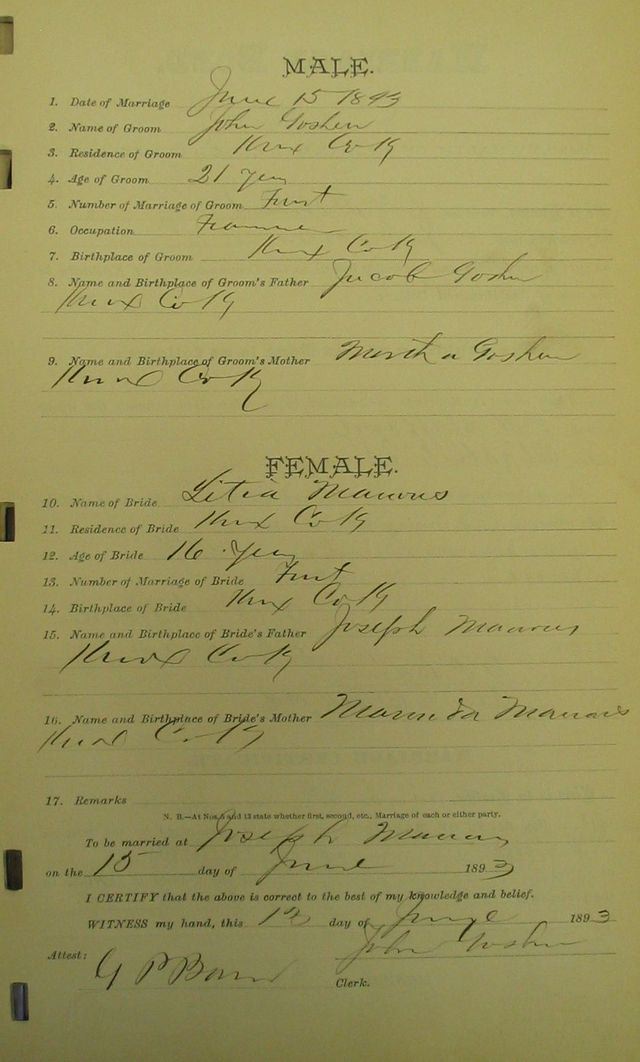 MALE.
1. Date of Marriage June 15 1893
2. Name of Groom John Goshen
3. Residence of Groom Knox Co Ky
4. Age of Groom 21 years
5. Number of Marriage of Groom First
6. Occupation Farmer
7. Birthplace of Groom Knox Co Ky
8. Name and Birthplace of Groom's Father Jacob Goshen
Knox Co Ky
9. Name and Birthplace of Groom's Mother Martha Goshen
Knox Co Ky
FEMALE.
10. Name of Bride
11. Residence of Bride Knox Co Ky
12. Age of Bride 16 years
13. Number of Marriage of Bride First
14. Birthplace of Bride Knox Co Ky
15. Name and Birthplace of Bride's Father Joseph
Knox Co Ky
16. Name and Birthplace of Bride's Mother
Knox Co Ky
17. Remarks
N. B.—At Nos. 5 and 13 state whether first, second, etc., Marriage of each or either party.
To be married at Joseph
on the 15 day of June 1893
I CERTIFY that the above is correct to the best of my knowledge and belief.
WITNESS my hand, this 12 day of June 1893
John Goshen
Attest:
G P
Clerk.